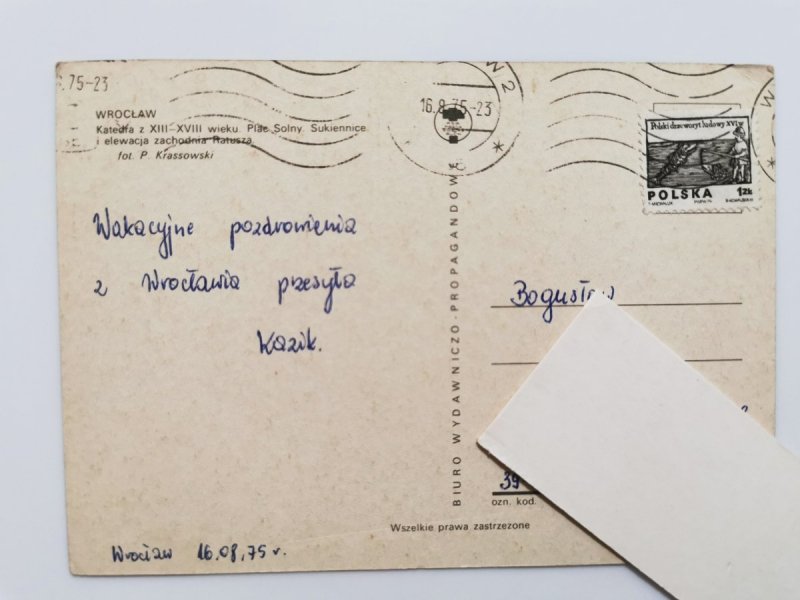 .75-23
16.8.75-23
W 2
WROCŁAW
Katedra z XIII-XVIII wieku. Plac Solny. Sukiennice
i elewacja zachodnia Ratusza
fot. P. Krassowski
Polski drzeworyt ludowy XVI w
POLSKA 1ZŁ
Wakacyjne pozdrowienia
z Wrocławia przesyła
Kazik.
Wrocław 16.08.75 r.
BIURO WYDAWNICZO-PROPAGANDOWE
Bogusław
39
ozn. kod.
Wszelkie prawa zastrzeżone